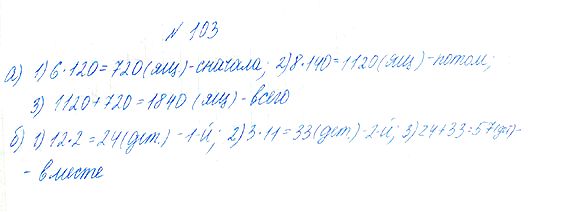 № 103
а) 1) 6·120=720(ящ)-сначала; 2) 8·140=1120(ящ)-потом;
3) 1120+720=1840 (ящ)-всего
б) 1) 12·2=24(дет.) -1-й; 2) 3·11=33(дет.)-2-й; 3) 24+33=57(дет)-
- вместе